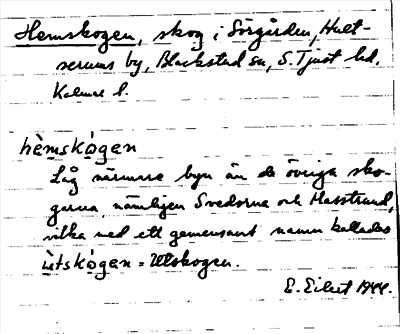 Hemskogen, skog i Sörgården, Hult-
serums by, Blackstad sn, S. Tjust hd,
Kalmar l.
hèmskógen
Låg närmare byn än de övriga sko-
garna, nämligen Svedorna och Masstrand,
vilka med ett gemensamt namn kallades
ùtskógen = Utskogen.
E. Eilert 1944.